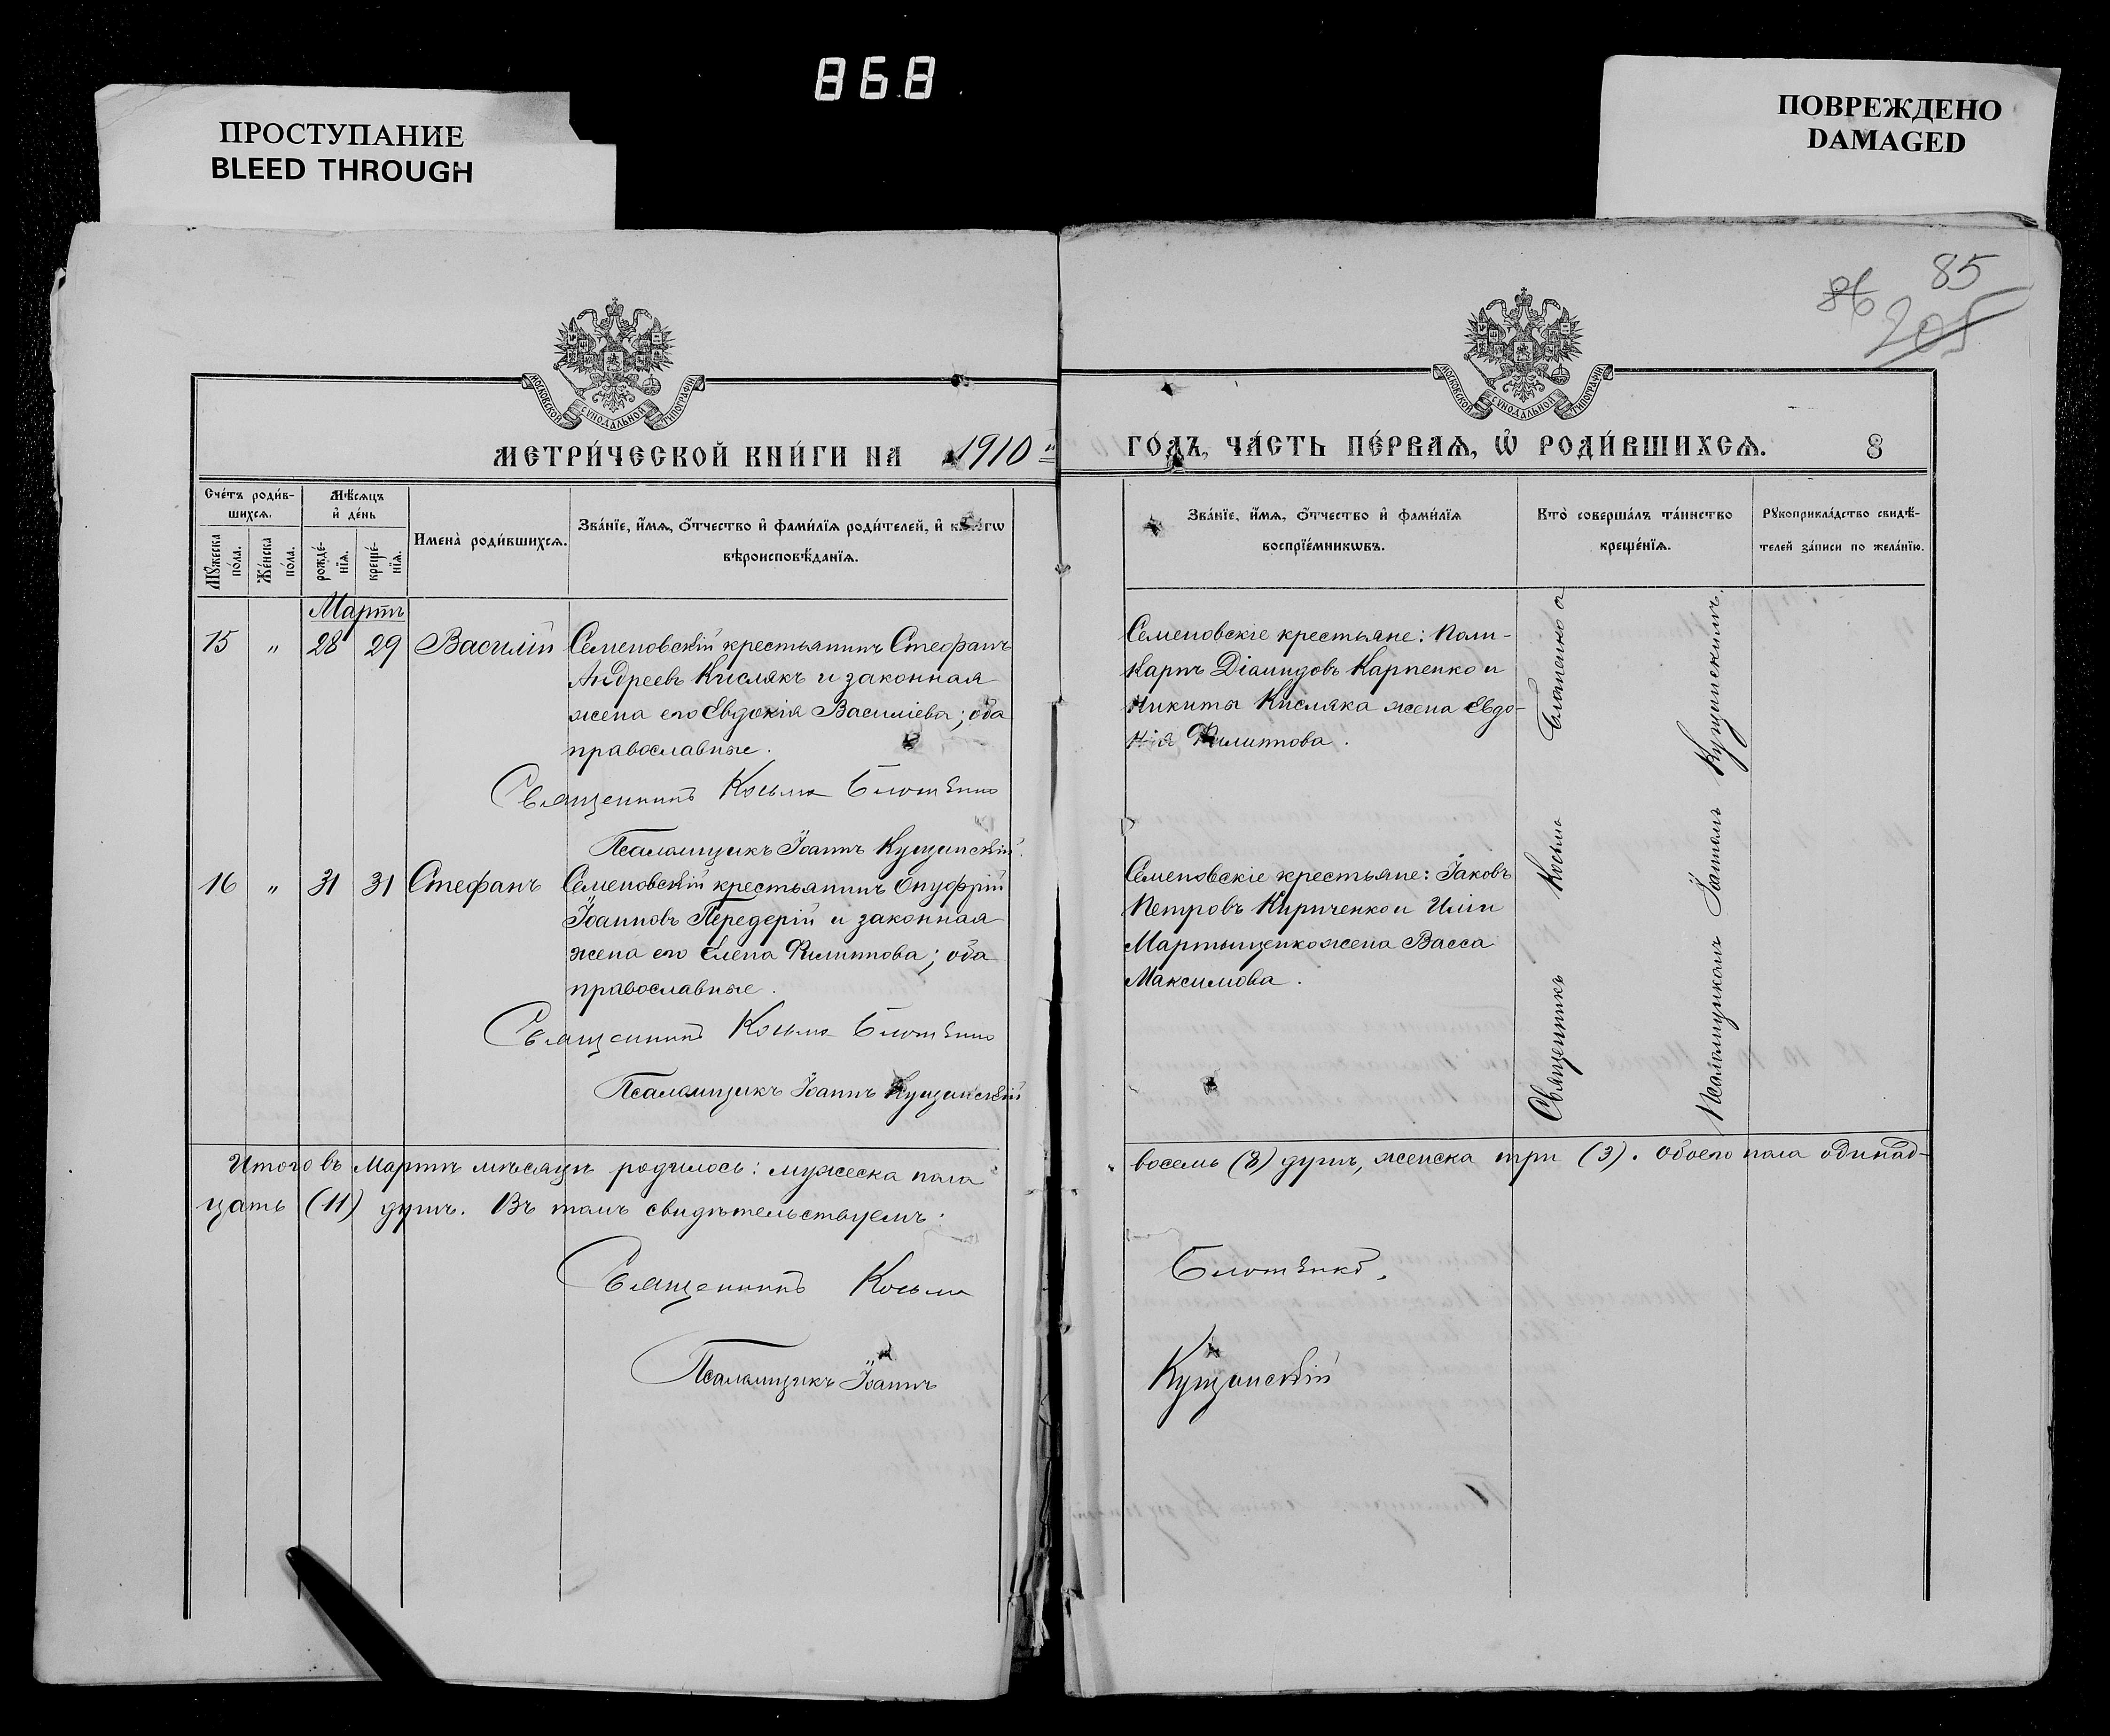 868
ПРОСТУПАНИЕ
BLEED THROUGH
ПОВРЕЖДЕНО
DAMAGED
85
86
205
МОСКОВСКОЙ СѴНОДАЛЬНОЙ ТИПОГРАФІИ
МОСКОВСКОЙ СѴНОДАЛЬНОЙ ТИПОГРАФІИ
МЕТРИ́ЧЕСКОЙ КНИ́ГИ НА 1910
ГО́ДЪ, ЧА́СТЬ ПЕ́РВАѦ, Ѡ҆ РОДИ́ВШИХСѦ. 8
Сче́тъ роди́в-
шихсѧ.
Мꙋжеска по́ла.
Же́нска по́ла.
Мѣ́сѧцъ
и҆ де́нь
рожде́-
нїѧ.
креще́-
нїѧ.
Имена̀ роди́вшихсѧ.
Зва́нїе, и҆́мѧ, ѻ҆́тчество и҆ фами́лїѧ роди́телей, и҆ како́гѡ
вѣроисповѣ́данїѧ.
Зва́нїе, и҆́мѧ, ѻ҆́тчество и҆ фами́лїѧ
воспрїе́мникѡвъ.
Кто̀ соверша́лъ та́инство
креще́нїѧ.
Рꙋкоприкла́дство свидѣ́-
телей за́писи по жела́нїю.
Мартъ
15 " 28 29 Василій Семеновскій крестьянинъ Стефанъ
Андреевъ Кислякъ и законная
жена его Евдокія Василіева; оба
православные.
Священникъ Косьма
Псаломщикъ Іоаннъ Кущинскій.
Семеновскіе крестьяне: Поли-
карпъ Діамидовъ Карпенко и
Никиты Кисляка жена Евдо-
кія Филиппова.
16 " 31 31 Стефанъ Семеновскій крестьянинъ Онуфрій
Іоанновъ Передерій и законная
жена его Елена Филиппова; оба
православные.
Священникъ Косьма
Псаломщикъ Іоаннъ Кущинскій
Семеновскіе крестьяне: Іаковъ
Петровъ Кириченко и Иліи
Мартыщенко жена Васса
Максимова.
Священникъ Косьма
Псаломщикомъ Кущинскимъ.
Итого въ Мартѣ мѣсяцѣ родилось: мужеска пола
восемь (8) душъ, женска три (3). Обоего пола одинад-
цать (11) душъ. Въ томъ свидѣтельствуемъ:
Священникъ Косьма
Псаломщикъ Іоаннъ
Кущинскій